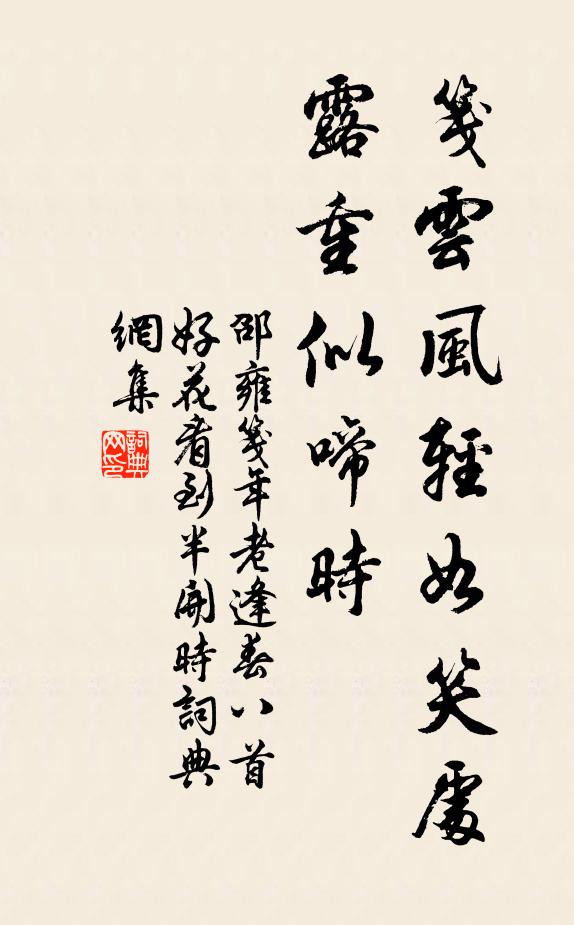 箋雲風輕如笑處
露重似啼時
邵雍箋年老逢春八首
好花看到半開時詞典
網集
詞典
网印